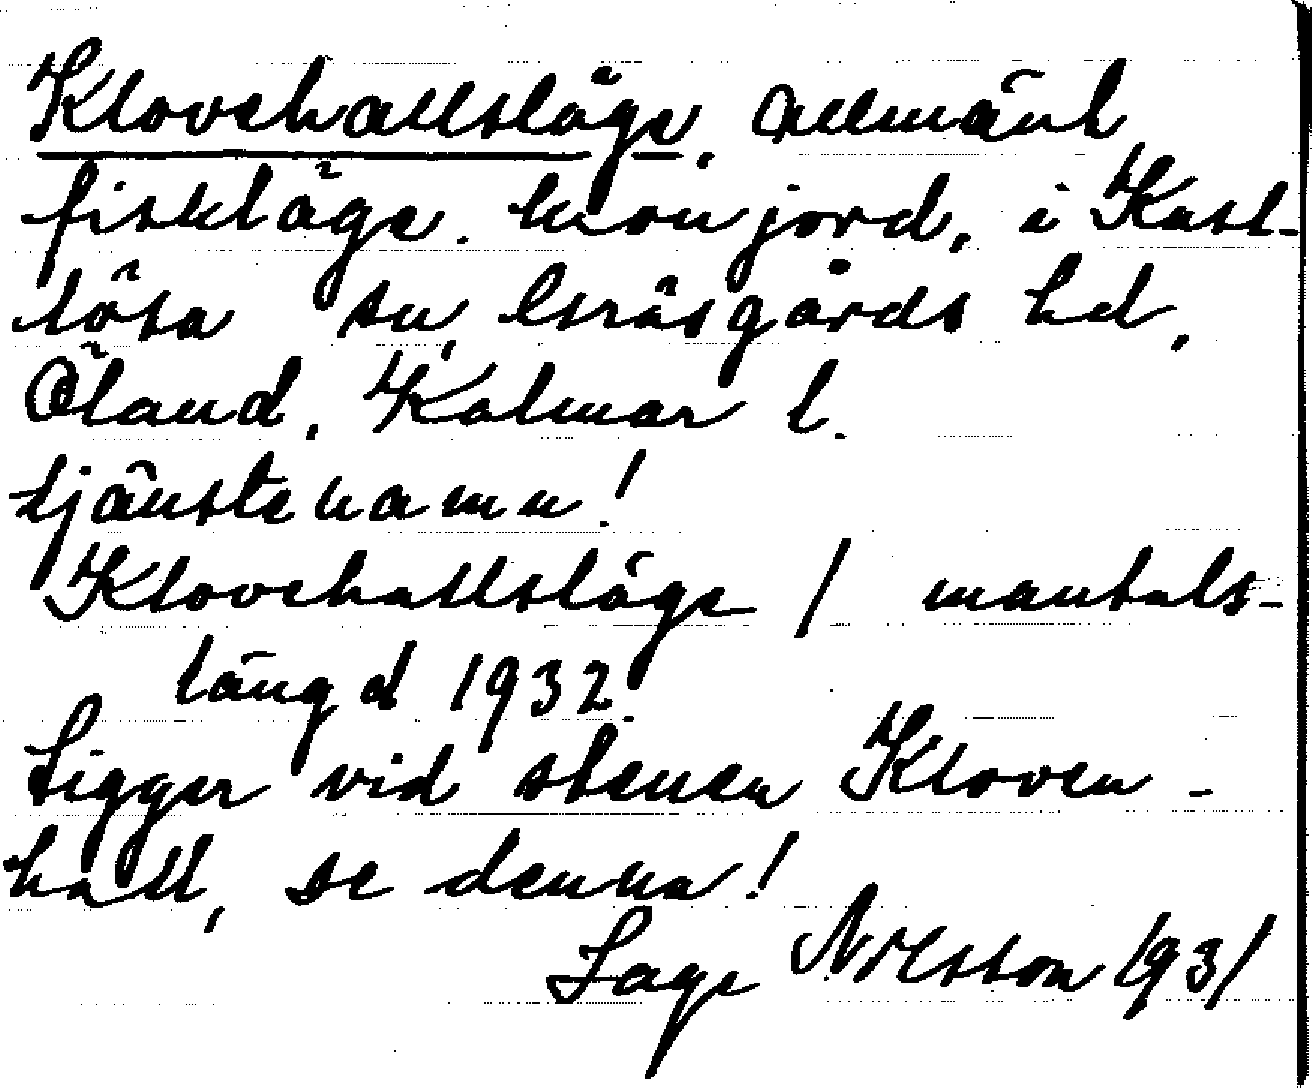 Klovehallsläge, allmänt
fiskläge. kronjord, i Kast-
lösa sn, Gräsgårds hd,
Öland, Kalmar l.
tjänstenamn!
Klovehallsläge / mantals-
längd 1932.
Ligger vid stenen Kloven -
hall, se denna!
Sage Nilsson 1931